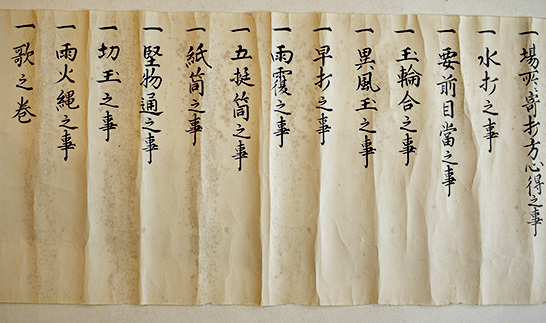 一場所寄打方心得之事
一水打之事
一要前目當之事
一玉輪合之事
一異風玉之事
一早打之事
一雨覆之事
一五挺筒之事
一紙筒之事
一堅物通之事
一切玉之事
一雨火縄之事
一歌之巻